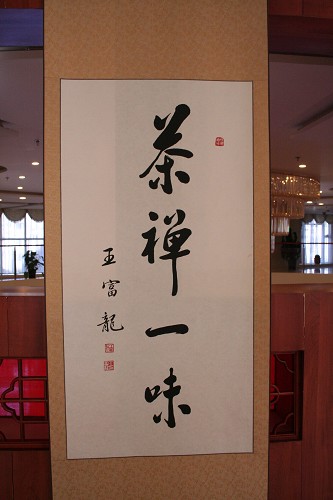 茶禅一味
王富龍